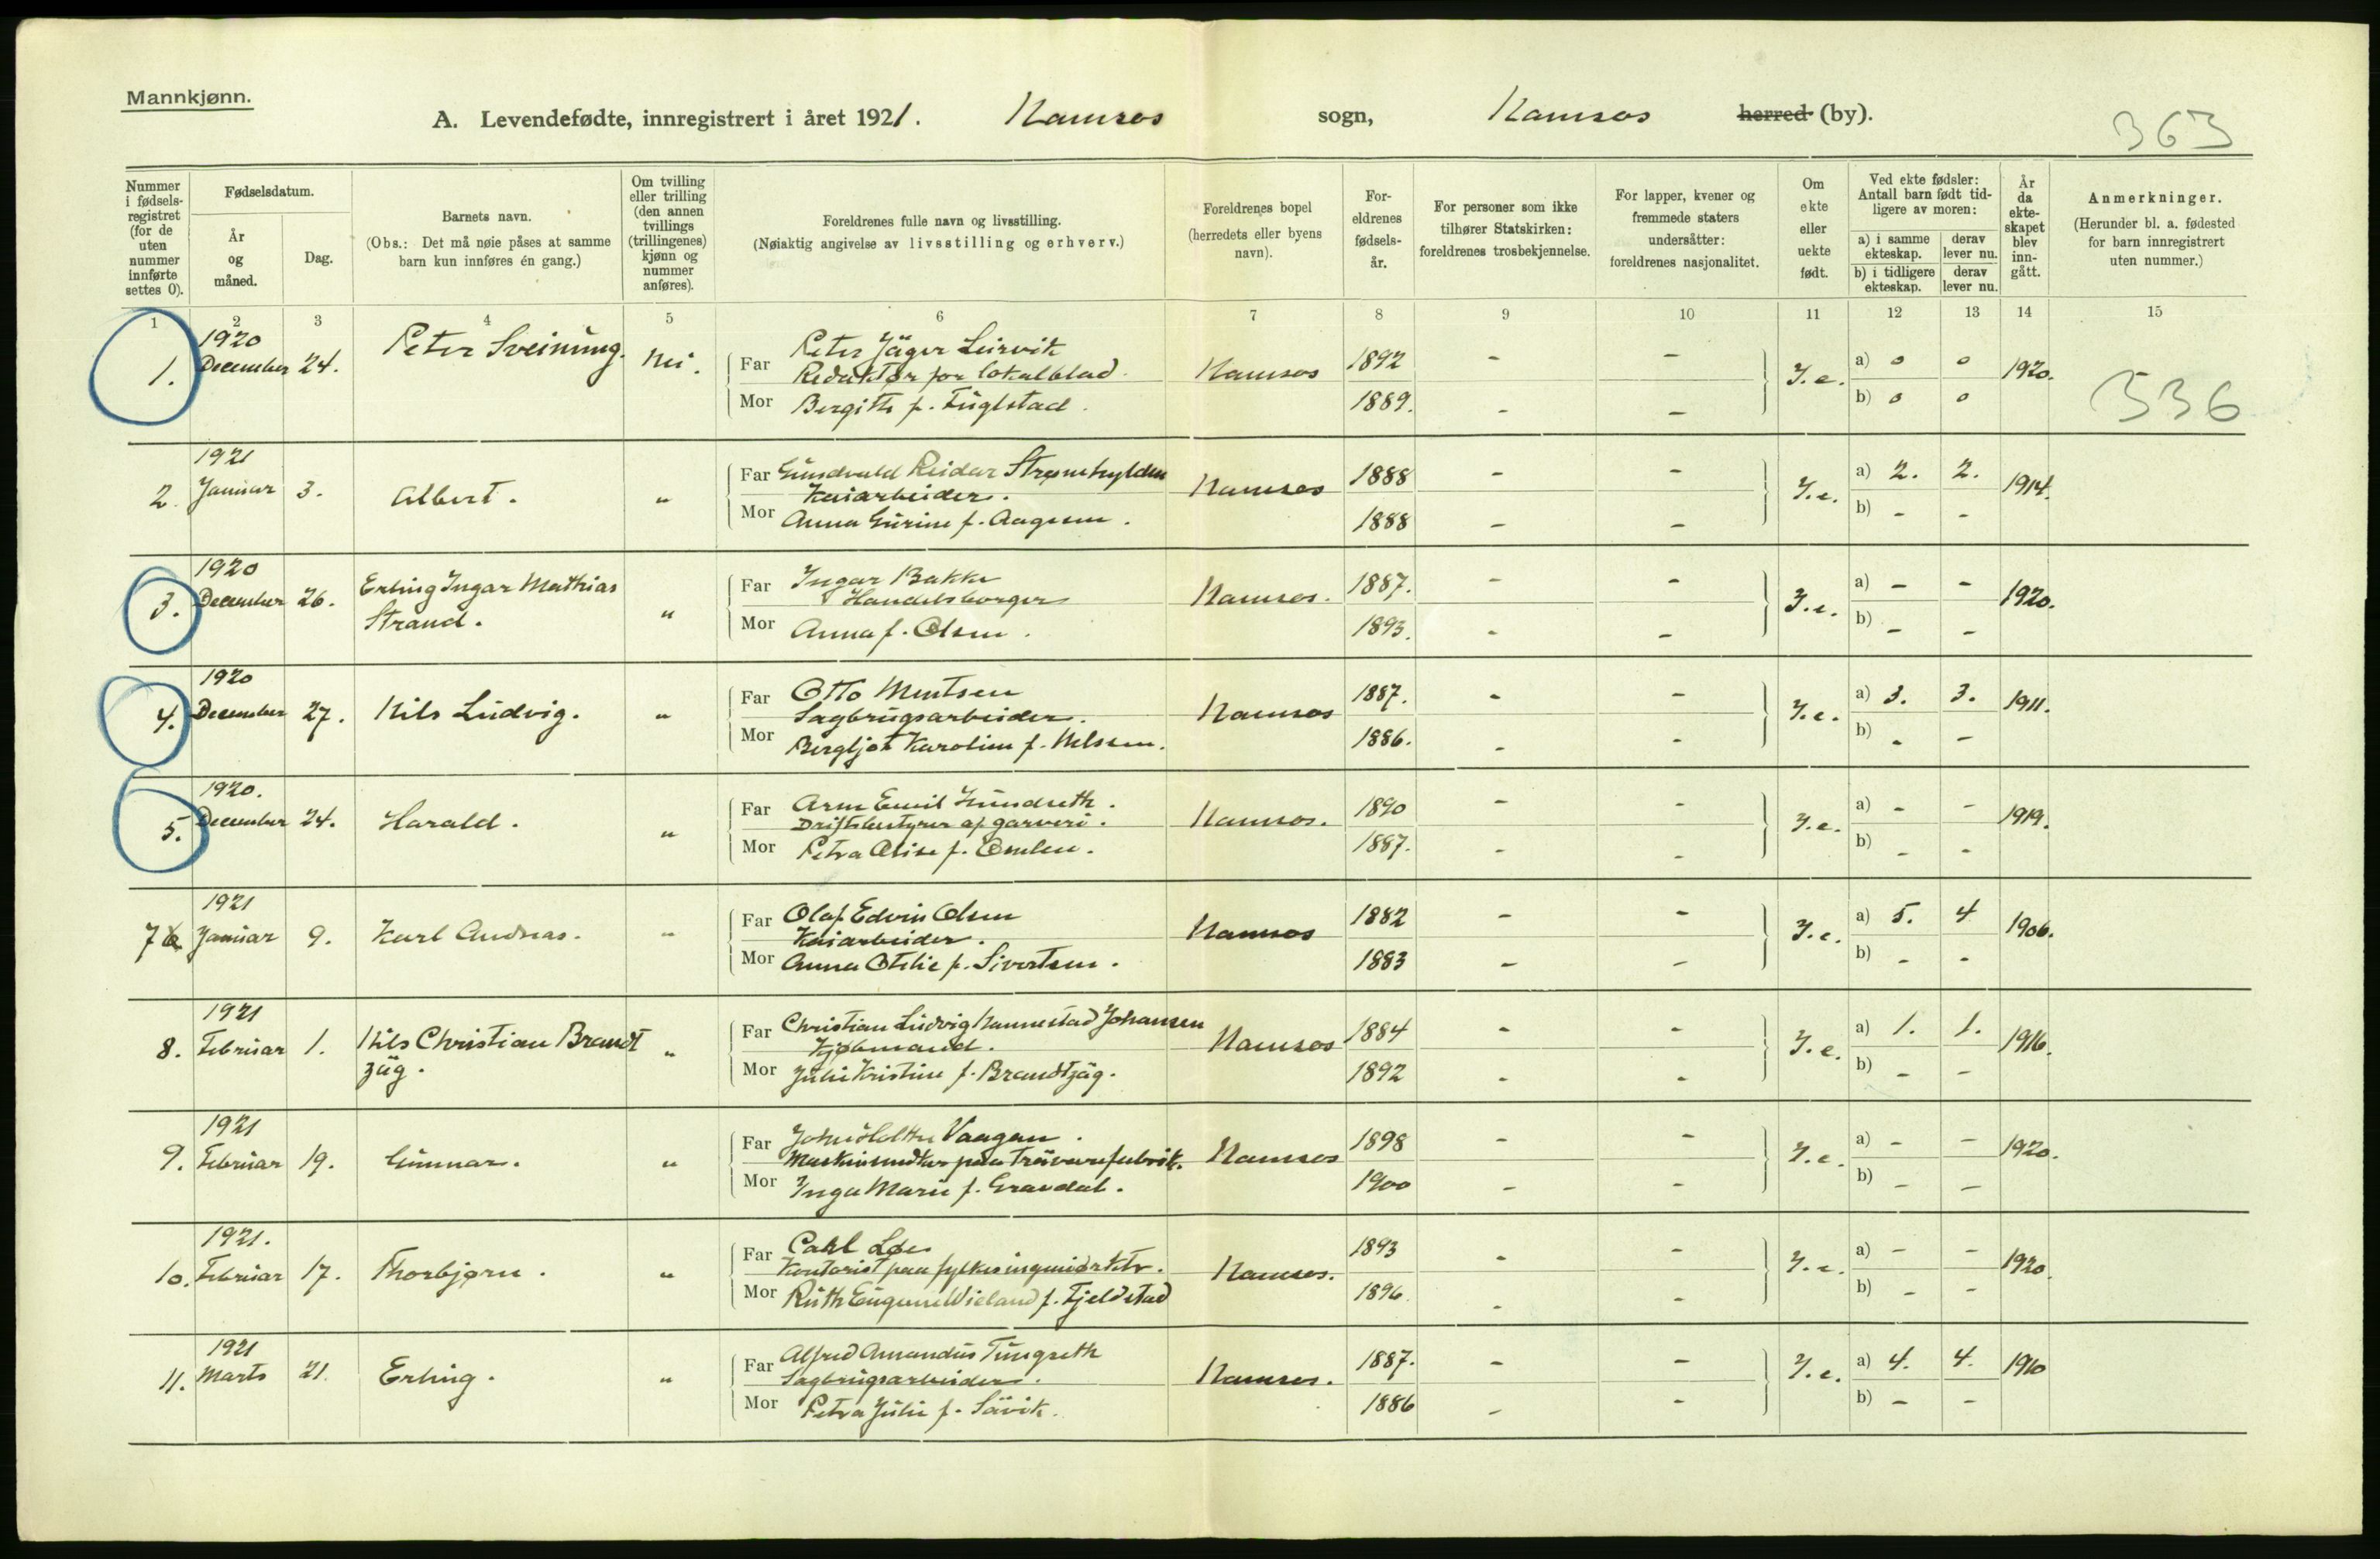 Mannkjønn.
A. Levendefødte, innregistrert i året 1921. Namsos sogn, Namsos herred (by).
363
Nummer i fødsels-registret (for de uten nummer innførte settes 0).
Fødselsdatum.
År og måned.
Dag.
Barnets navn.
(Obs.: Det må nøie påses at samme barn kun innføres én gang.)
Om tvilling eller trilling (den annen tvillings (trillingenes) kjønn og nummer anføres).
Foreldrenes fulle navn og livsstilling.
(Nøiaktig angivelse av livsstilling og erhverv.)
Foreldrenes bopel (herredets eller byens navn).
For-eldrenes fødsels-år.
For personer som ikke tilhører Statskirken: foreldrenes trosbekjennelse.
For lapper, kvener og fremmede staters undersåtter: foreldrenes nasjonalitet.
Om ekte eller uekte født.
Ved ekte fødsler: Antall barn født tid-ligere av moren:
a) i samme ekteskap. derav lever nu.
b) i tidligere ekteskap. derav lever nu.
År da ekte-skapet blev inn-gått.
Anmerkninger.
(Herunder bl. a. fødested for barn innregistrert uten nummer.)
1 2 3 4 5 6 7 8 9 10 11 12 13 14 15
1920
1. December 24. Peter Sveinung. Nei.
Far Peter Jäger Leirvik
Redaktør for lokalblad. Namsos 1892 - - I.e. a) 0 0 1920.
Mor Bergitte f. Fuglstad. 1889. - - b) 0 0
536
1921
2. Januar 3. Albert. "
Far Gundvald Reidar Strømhylden
Kaiarbeider. Namsos 1888 - - I.e. a) 2. 2. 1914.
Mor Anna Gurine f. Aagesen. 1888 - - b) - -
1920
3. December 26. Erling Ingar Mathias
Strand. "
Far Ingar Bakke
Handelsborger Namsos. 1887. - - I.e. a) - - 1920.
Mor Anna f. Olsen. 1893. - - b) - -
1920
4. December 27. Nils Ludvig. "
Far Otto Mentsen
Sagbrugsarbeider. Namsos 1887. - - I.e. a) 3. 3. 1911.
Mor Bergljot Karoline f. Nelssen. 1886. - - b) - -
1920.
5. December 24. Harald. "
Far Arne Emil Hundseth.
Driftsbestyrer af garveri. Namsos. 1890 - - I.e. a) - - 1919.
Mor Petra Olise f. 1887. - - b) - -
1921
7 Januar 9. Karl Andreas. "
Far Olaf Edvin Olsen
Kaiarbeider. Namsos 1882 - - I.e. a) 5. 4 1906.
Mor Anna Otelie f. Sivertsen. 1883 - - b) - -
1921
8. Februar 1. Nils Christian Brandt
zäg. "
Far Christian Ludvig Johansen
Kjøbmand. Namsos 1884 - - I.e. a) 1. 1. 1916.
Mor Julie Kristine f. Brandtzäg. 1892 - - b) - -
1921
9. Februar 19. Gunnar. "
Far John Holthe Vaagan.
paa Trävarefabrik. Namsos 1898 - - I.e. a) - - 1920.
Mor Inga Marie f. Gravdal. 1900 - - b) - -
1921.
10. Februar 17. Thorbjørn. "
Far Carl Løe.
Kontorist paa fylkesingeniørktr. Namsos. 1893 - - I.e. a) - - 1920.
Mor Ruth Eugenie Wieland f. Fjeldstad 1896 - - b) - -
1921
11. Marts 21. Erling. "
Far Alfred Amandus Tungseth
Sagbrugsarbeider. Namsos. 1887. - - I.e. a) 4. 4. 1910
Mor Petra Julie f. Sävik. 1886 - - b) - -